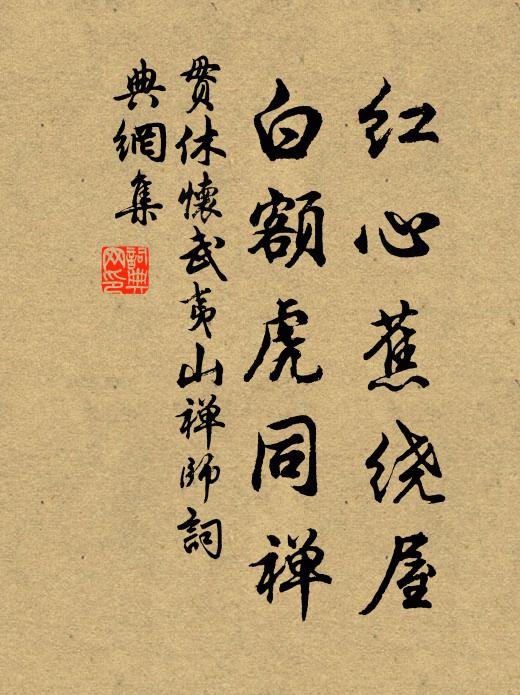 红心蕉绕屋
白额虎同禅
贯休懷武夷山禅师詞
典網集
詞典
网印